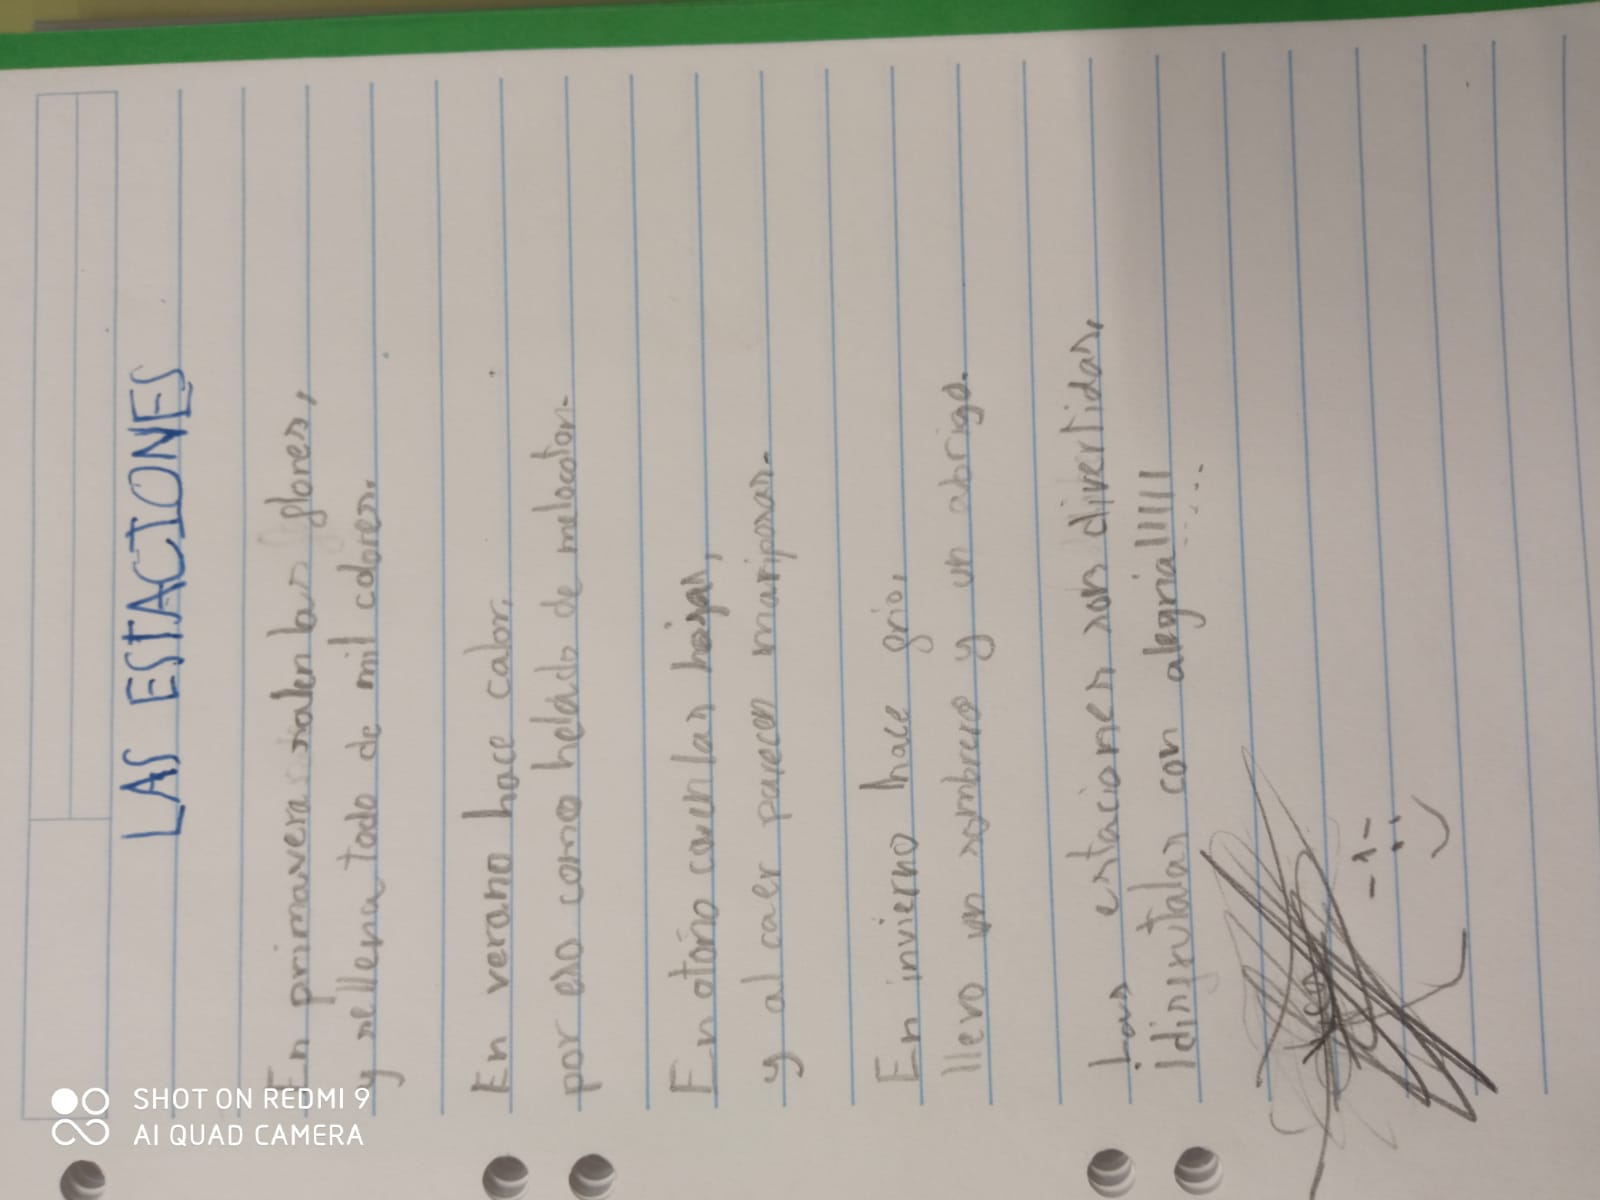 LAS ESTACIONES
En primavera salen las flores,
y rellena todo de mil colores.
En verano hace calor,
por eso como helado de melocoton.
En otoño caen las hojas,
y al caer parecen mariposas.
En invierno hace frio,
llevo un sombrero y un abrigo.
Las estaciones son divertidas,
¡¡disfrutalas con alegria!!!!!
SHOT ON REDMI 9
AI QUAD CAMERA